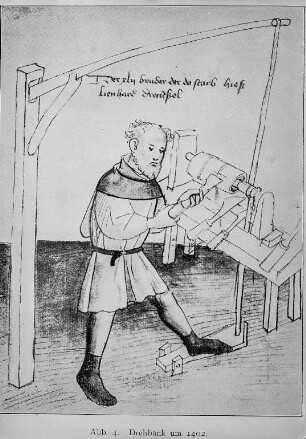 Der xlij bruder der do starb hieß
lienhard drechßel
Abb. 4. Drehbank um 1492.